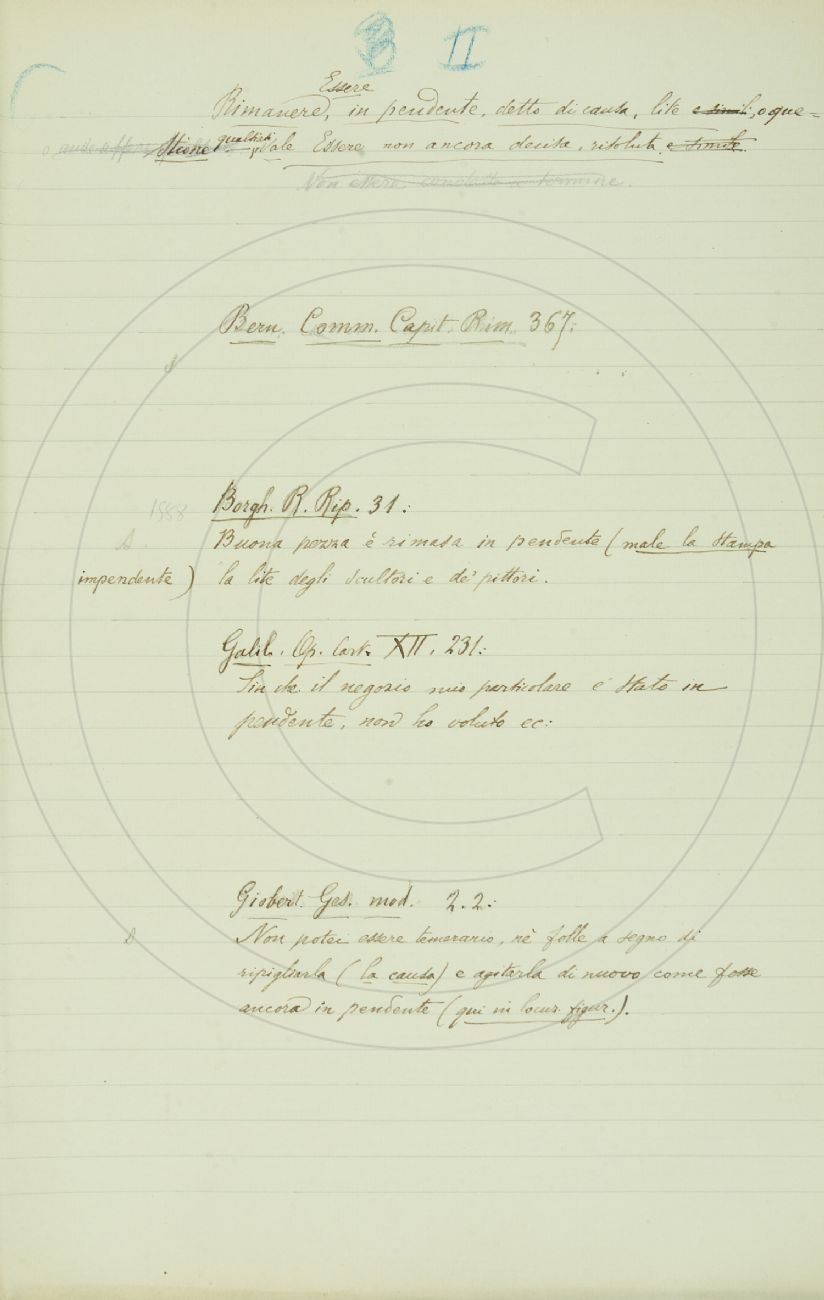 B II
Essere
Rimanere, in pendente, detto di causa, lite e simili, o que=
stione qualsiasi, vale Essere non ancora decisa, risoluta e simile.
Non essere condotta a termine.
Bern. Comm. Capit. Rim. 367:
1588
Borgh. R. Rip. 31:
Buona pezza è rimasa in pendente (male la stampa
impendente) la lite degli scultori e de' pittori.
Galil. Op. XII. 231:
Sin che il negozio mio particolare è stato in
pendente, non ho voluto ec:
Giobert. Ges. mod. 2.2:
Non potei essere temerario, nè folle a segno di
ripigliarla (la causa) e agitarla di nuovo come fosse
ancora in pendente (qui in locuz. figur.).